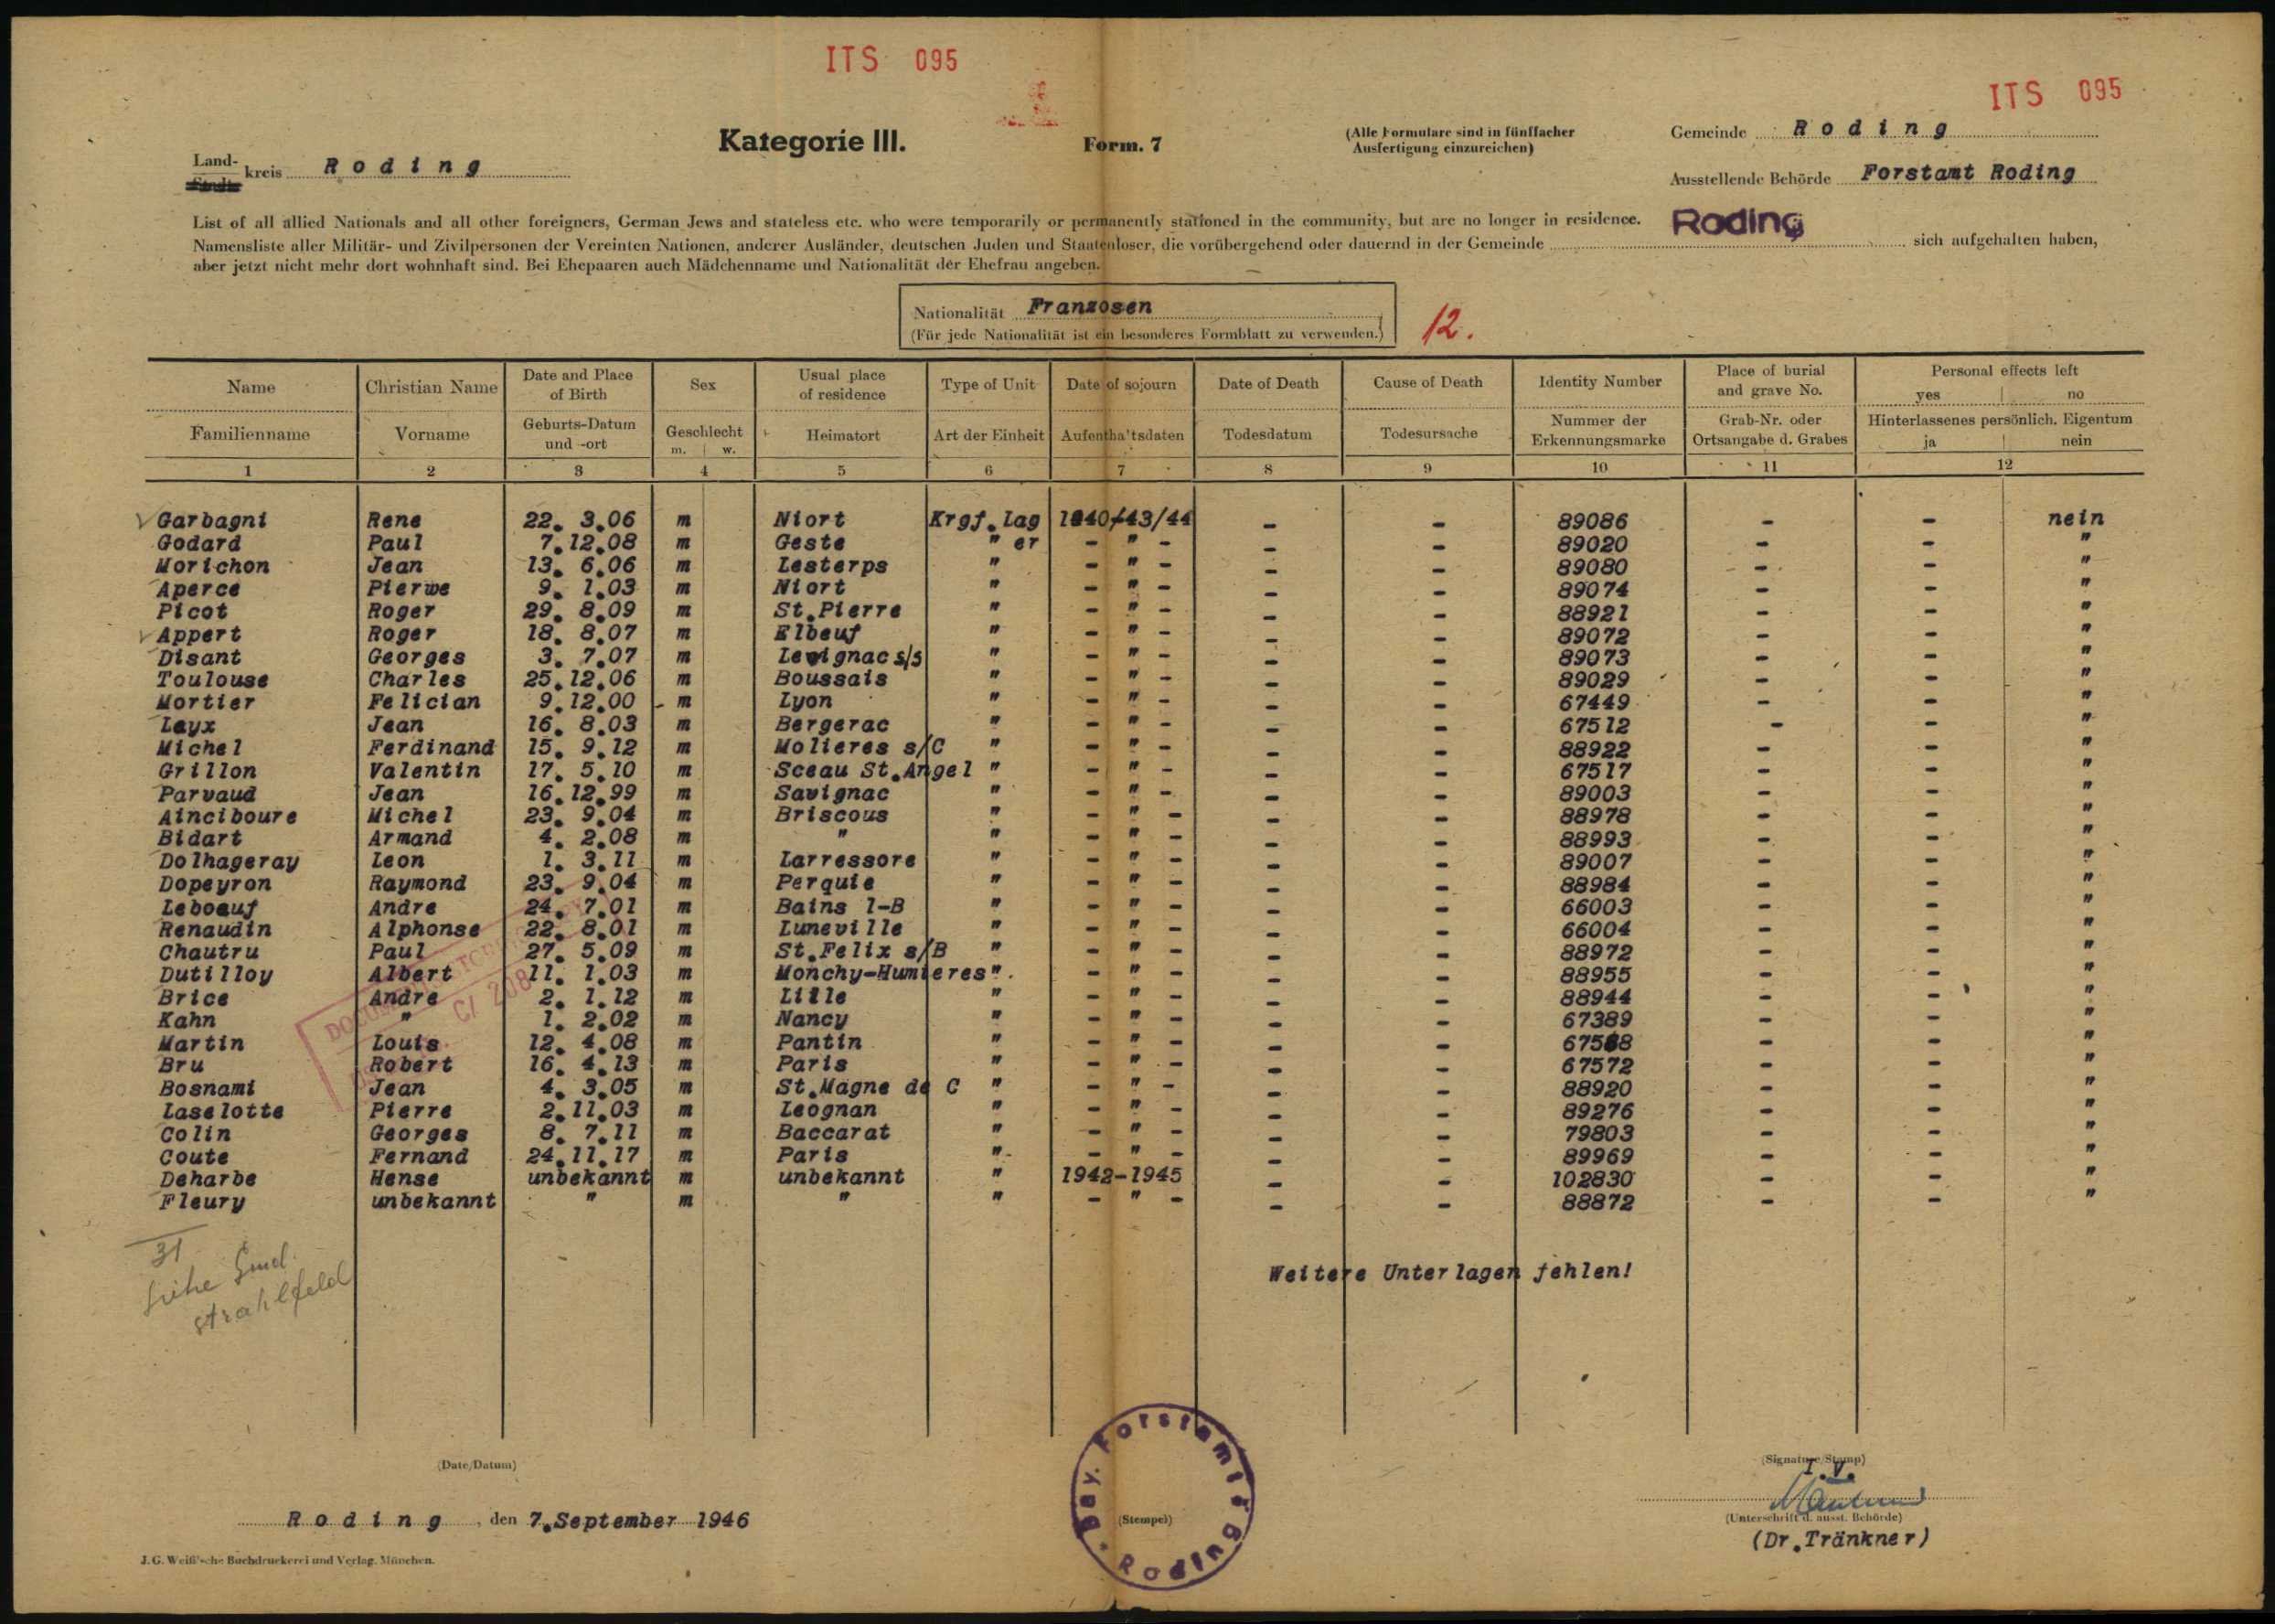 ITS 095
ITS 095
Kategorie III.
Form. 7
(Alle Formulare sind in fünffacher
Ausfertigung einzureichen)
Gemeinde Roding
Land-
Stadt- kreis Roding
Ausstellende Behörde Forstamt Roding
List of all allied Nationals and all other foreigners, German Jews and stateless etc. who were temporarily or permanently stationed in the community, but are no longer in residence.
Namensliste aller Militär- und Zivilpersonen der Vereinten Nationen, anderer Ausländer, deutschen Juden und Staatenloser, die vorübergehend oder dauernd in der Gemeinde Roding sich aufgehalten haben,
aber jetzt nicht mehr dort wohnhaft sind. Bei Ehepaaren auch Mädchenname und Nationalität der Ehefrau angeben.
Nationalität Franzosen
(Für jede Nationalität ist ein besonderes Formblatt zu verwenden.)
12.
Name | Christian Name | Date and Place of Birth | Sex | Usual place of residence | Type of Unit | Date of sojourn | Date of Death | Cause of Death | Identity Number | Place of burial and grave No. | Personal effects left yes | no
Familienname | Vorname | Geburts-Datum und -ort | Geschlecht m. | w. | Heimatort | Art der Einheit | Aufenthaltsdaten | Todesdatum | Todesursache | Nummer der Erkennungsmarke | Grab-Nr. oder Ortsangabe d. Grabes | Hinterlassenes persönlich. Eigentum ja | nein
1 2 3 4 5 6 7 8 9 10 11 12
Garbagni Rene 22. 3.06 m Niort Krgf.Lag 1940/43/44 - - 89086 - - nein
Godard Paul 7.12.08 m Geste " er - " - - - 89020 - - "
Morichon Jean 13. 6.06 m Lesterps " - " - - - 89080 - - "
Aperce Pierre 9. 1.03 m Niort " - " - - - 89074 - - "
Picot Roger 29. 8.09 m St.Pierre " - " - - - 88921 - - "
Appert Roger 18. 8.07 m Elbeuf " - " - - - 89072 - - "
Disant Georges 3. 7.07 m Levignac s/s " - " - - - 89073 - - "
Toulouse Charles 25.12.06 m Boussais " - " - - - 89029 - - "
Mortier Felician 9.12.00 m Lyon " - " - - - 67449 - - "
Layx Jean 16. 8.03 m Bergerac " - " - - - 67512 - - "
Michel Ferdinand 15. 9.12 m Molieres s/C " - " - - - 88922 - - "
Grillon Valentin 17. 5.10 m Sceau St.Angel " - " - - - 67517 - - "
Parvaud Jean 16.12.99 m Savignac " - " - - - 89003 - - "
Ainciboure Michel 23. 9.04 m Briscous " - " - - - 88978 - - "
Bidart Armand 4. 2.08 m " " - " - - - 88993 - - "
Dolhageray Leon 1. 3.11 m Larressore " - " - - - 89007 - - "
Dopeyron Raymond 23. 9.04 m Perquie " - " - - - 88984 - - "
Leboeuf Andre 24. 7.01 m Bains l-B " - " - - - 66003 - - "
Renaudin Alphonse 22. 8.01 m Luneville " - " - - - 66004 - - "
Chautru Paul 27. 5.09 m St.Felix s/B " - " - - - 88972 - - "
Dutilloy Albert 11. 1.03 m Monchy-Humieres " - " - - - 88955 - - "
Brice Andre 2. 1.12 m Lille " - " - - - 88944 - - "
Kahn " 1. 2.02 m Nancy " - " - - - 67389 - - "
Martin Louis 12. 4.08 m Pantin " - " - - - - - "
Bru Robert 16. 4.13 m Paris " - " - - - 67572 - - "
Bosnami Jean 4. 3.05 m St.Magne de C " - " - - - 88920 - - "
Laselotte Pierre 2.11.03 m Leognan " - " - - - 89276 - - "
Colin Georges 8. 7.11 m Baccarat " - " - - - 79803 - - "
Coute Fernand 24.11.17 m Paris " - " - - - 89969 - - "
Deharbe Hense unbekannt m unbekannt " 1942-1945 - - 102830 - - "
Fleury unbekannt " m " " - " - - - 88872 - - "
31
siehe Gmd.
Strahlfeld
C/ 208
Weitere Unterlagen fehlen!
(Date/Datum)
(Signature/Stamp)
I.V.
Roding, den 7.September 1946
Bay. Forstamt Roding
(Stempel)
(Unterschrift d. ausst. Behörde)
(Dr.Tränkner)
J. G. Weiß'sche Buchdruckerei und Verlag. München.